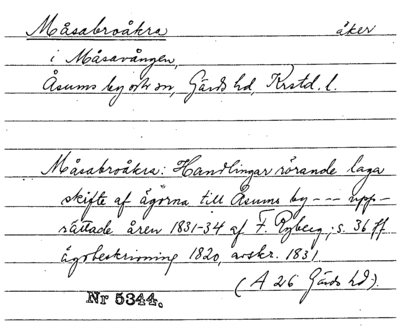 Måsabroåkra åker
i Måsavången,
Åsums by o. sn, Gärds hd, Krstd. l.
Måsabroåkra: Handlingar rörande laga
skifte af ägorna till Åsums by --- upp-
rättade åren 1831-34 af F. Ryberg; s. 36 ff
ägobeskrivning 1820, avskr. 1831.
(A 26 Gärds hd).
Nr 5344.